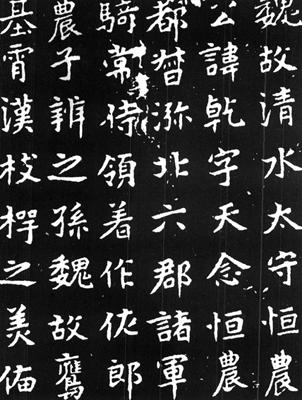 魏故清水太守恒農
公諱乾字天念恒農
都督沵北六郡諸軍
騎常侍領着作佐郎
農子辨之孫魏故鷹
基霄漢枝之美俻